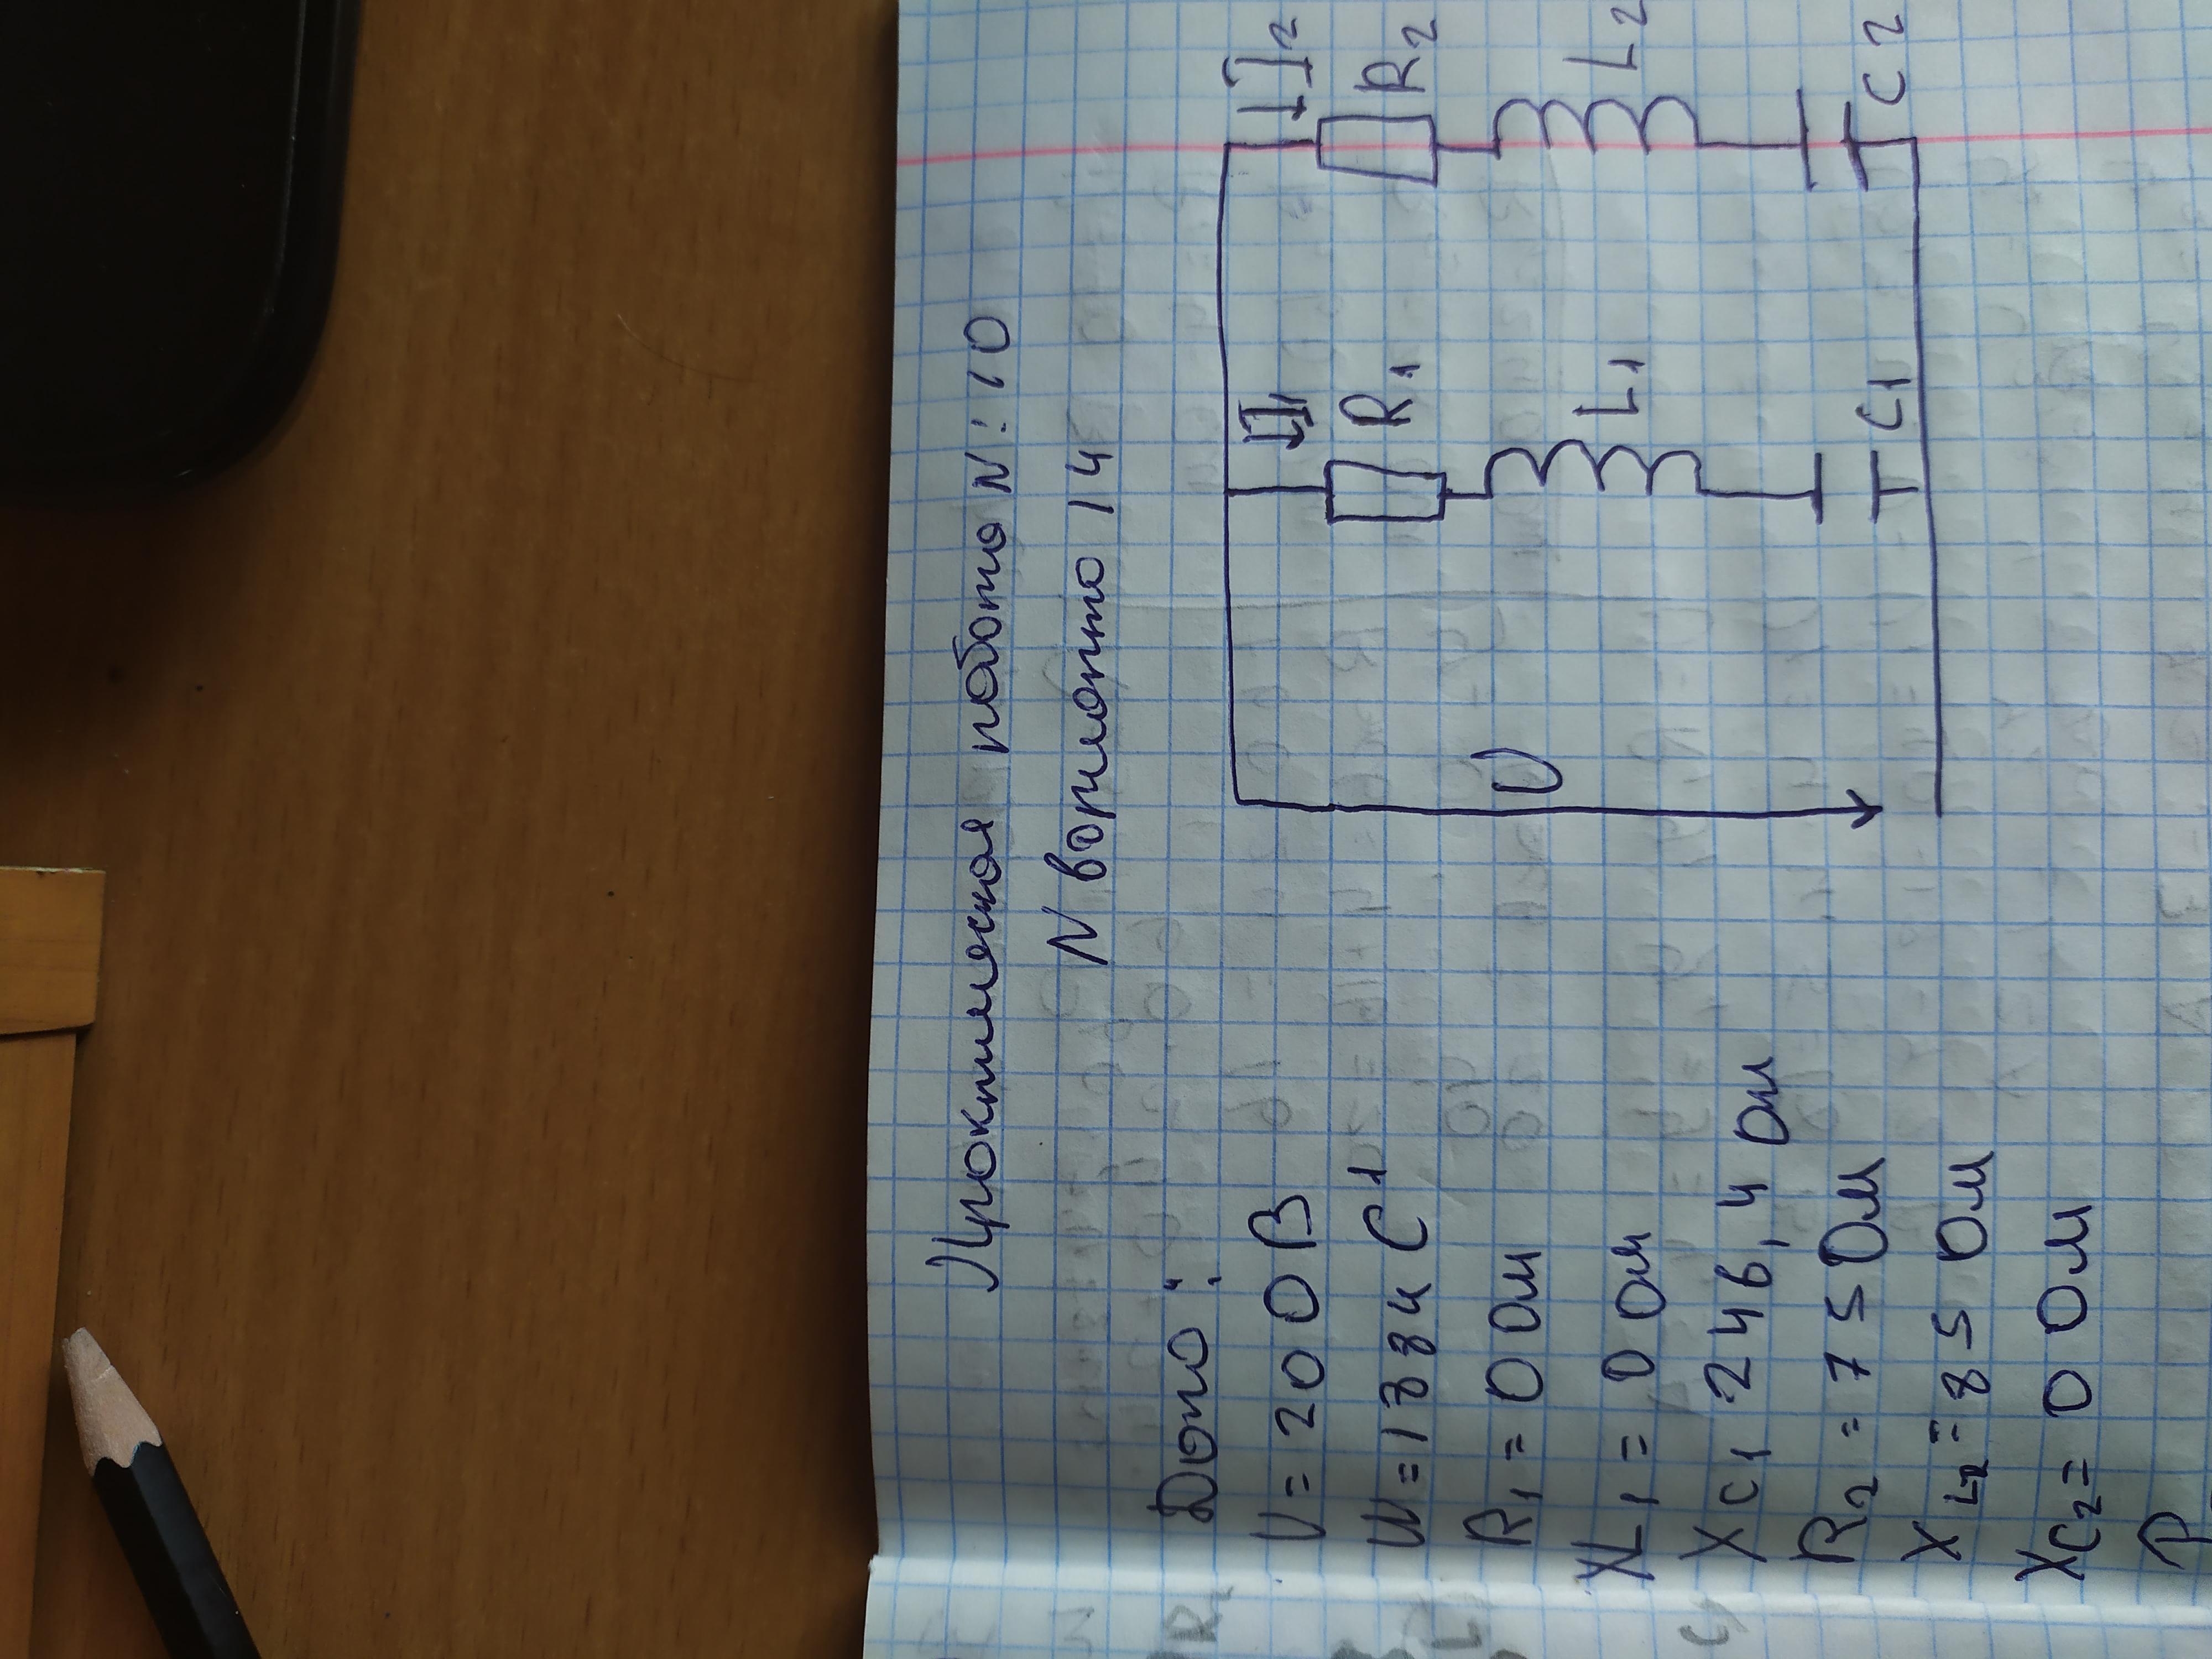 Практическая работа N: 10
N варианта 14
Дано:
U = 200 В
W = 1884 С¹
R₁ = 0 Ом
XL₁ = 0 Ом
XC₁ 246,4 Ом
R₂ = 75 Ом
XL₂ = 85 Ом
XC₂ = 0 Ом
U
I₁
R₁
L₁
C₁
I₂
R₂
L₂
C₂